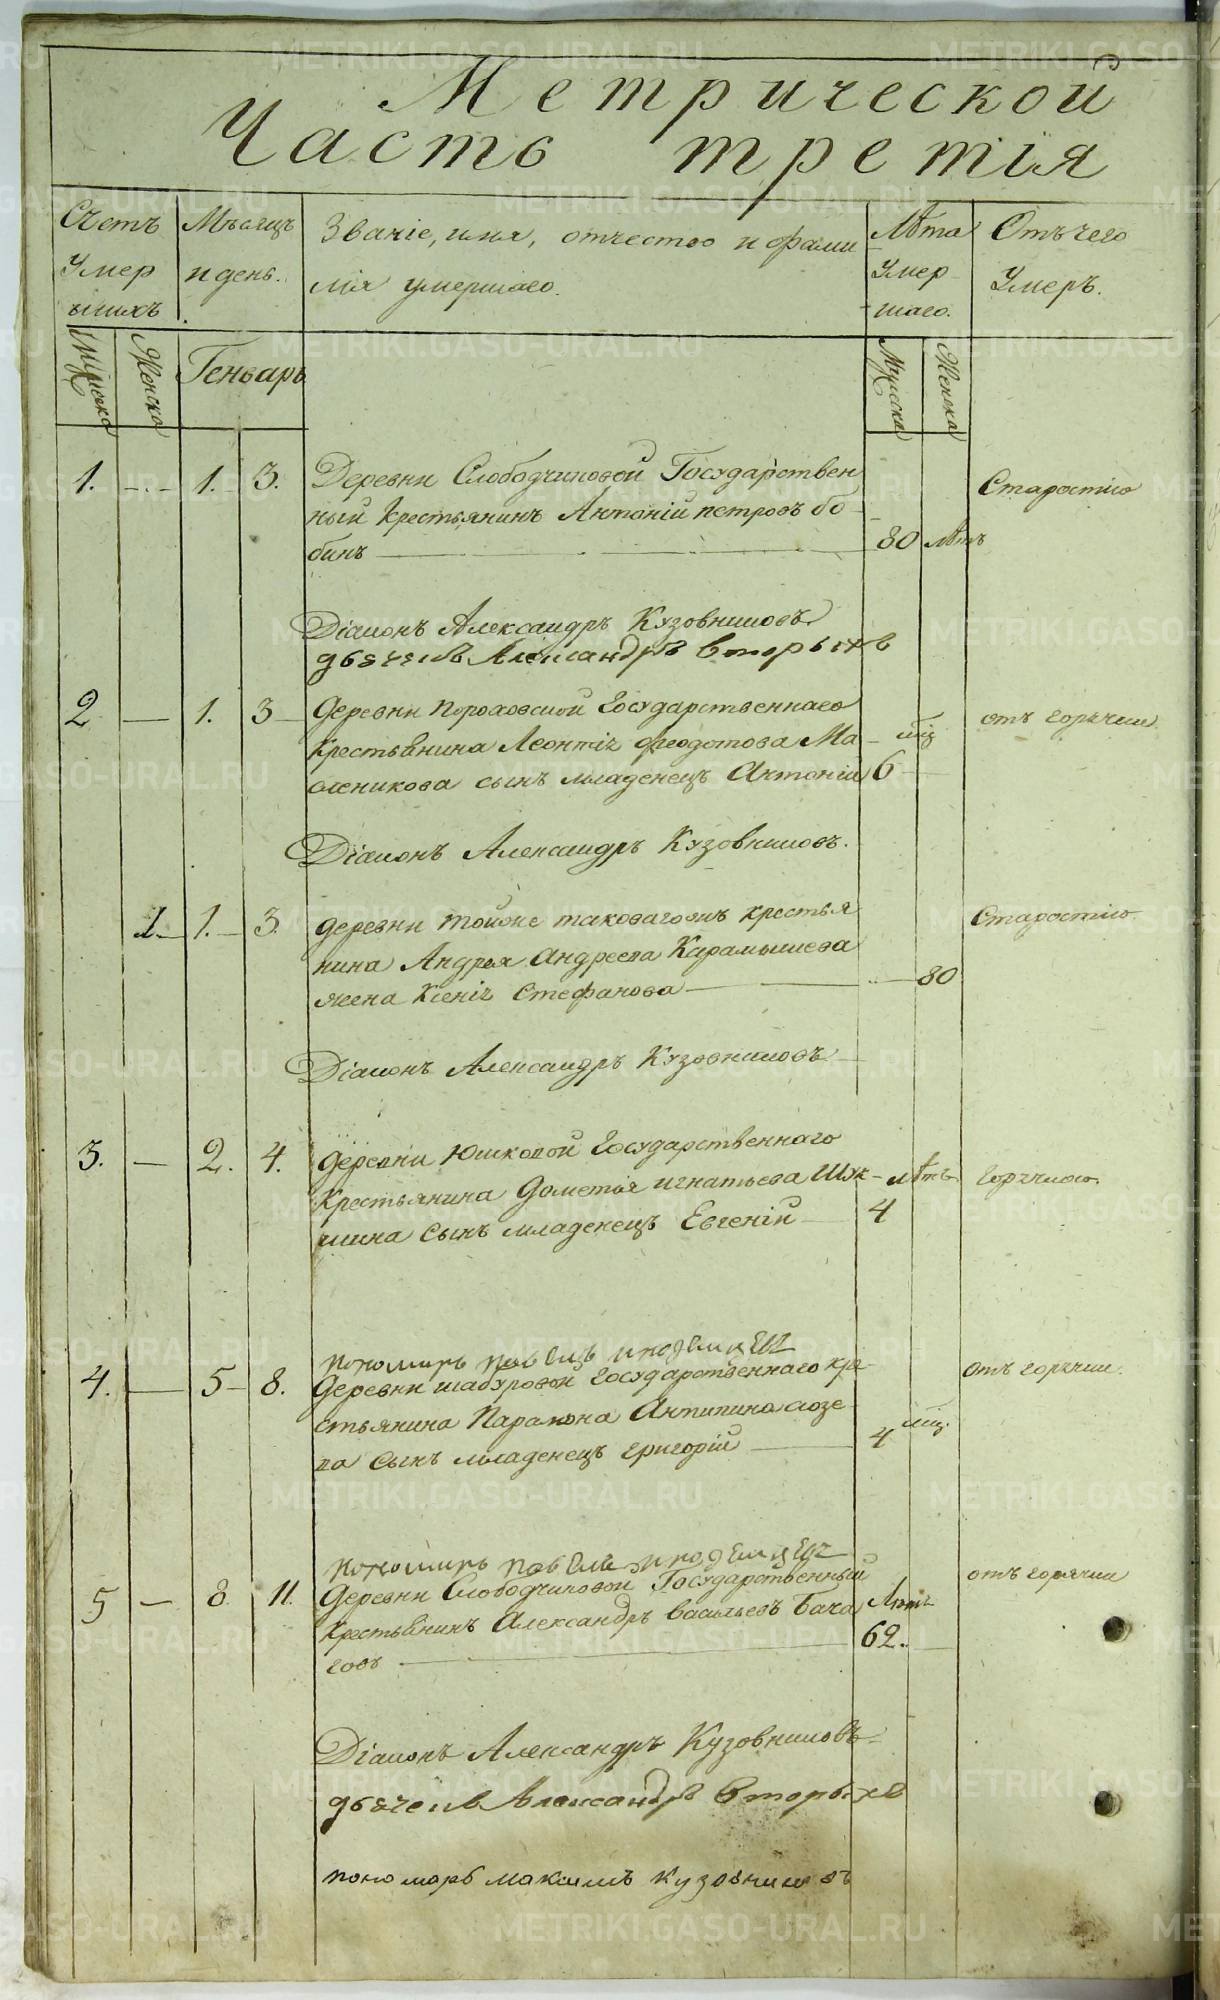 Метрической
Часть третія
Счетъ Умер шихъ
Мѣсяцъ и день.
Званіе, имя, отчество и фами
лія умершаго.
Лѣта Умер шаго.
Отъ чего Умеръ.
Мужеска Женска Генварь Мужеска Женска
1. 1. 3. Деревни Слободчиковой Государствен Старостію
ный крестьянинъ Антоній петровъ бо
бинъ 80 лѣтъ
Діаконъ Александръ Кузовниковъ
дьячекъ Александръ Вторыхъ
2 1. 3 деревни Пороховской государственнаго отъ горячки
крестьянина Леонтія феодотова Ма мѣц
сленикова сынъ младенецъ Антоній 6
Діаконъ Александръ Кузовниковъ.
1. 1. 3. деревни тойже таковагожъ крестья Старостію.
нина Андрея Андреева Карамышева
жена Ксенія Стефанова 80
Діаконъ Александръ Кузовниковъ
3. 2. 4. деревни Юшковой государственнаго
крестьянина Дометія игнатьева Шук лѣтъ горячкою.
шина сынъ младенецъ Евгеній 4
пономарь павелъ
4. 5 8. Деревни шабуровой государственнаго кре отъ горячки.
стьянина Парамона Антипина
ва сынъ младенецъ григорій 4 мѣц.
пономарь павелъ
5 8. 11. Деревни Слободчиковой Государственный отъ горячки
крестьянинъ Александръ васильевъ Бача Лѣтъ
говъ 62.
Діаконъ Александръ Кузовниковъ
дьячекъ Александръ Вторыхъ
пономарь максимъ кузовниковъ
METRIKI.GASO-URAL.RU